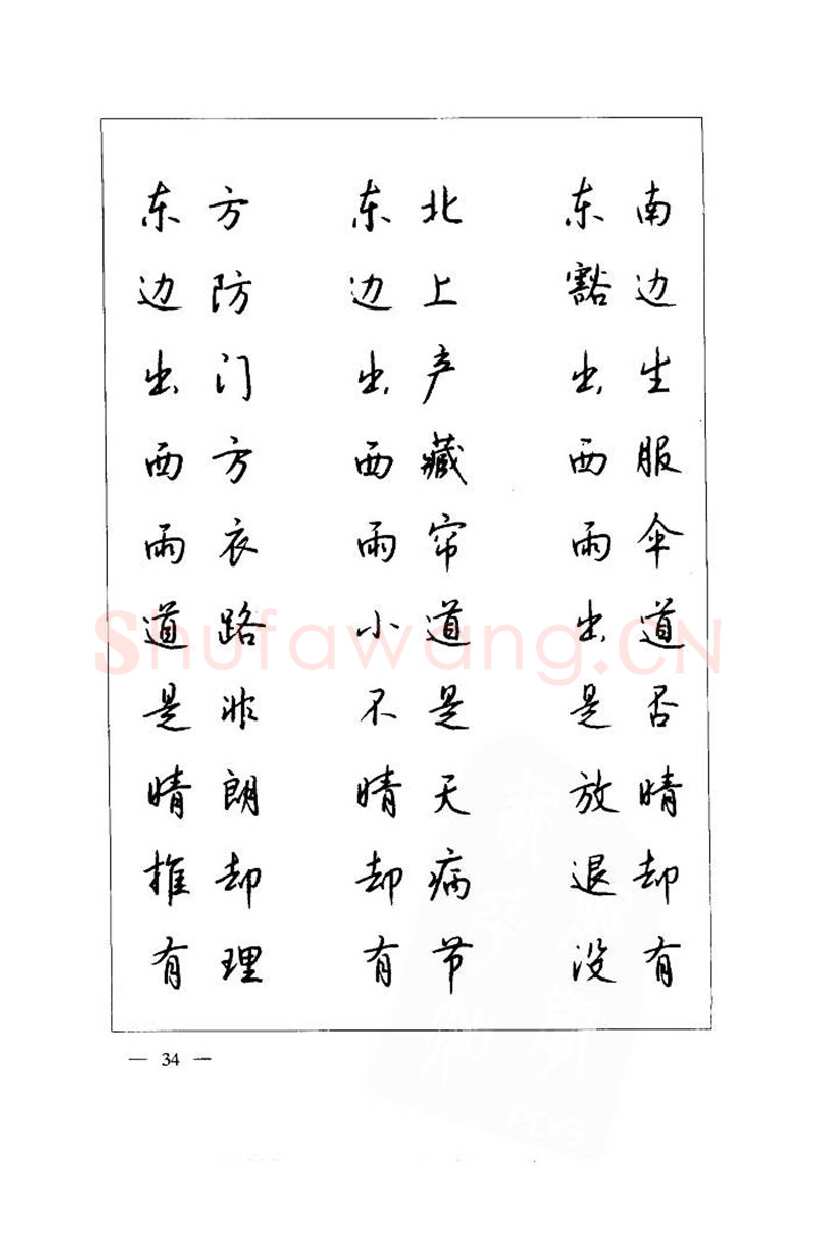 东方 东北 东南
边防 边上 豁边
出门 出产 出生
西方 西藏 西服
雨衣 雨帘 雨伞
道路 小道 出道
是非 不是 是否
晴朗 晴天 放晴
推却 却病 退却
有理 有节 没有
Shufawang.CN
— 34 —